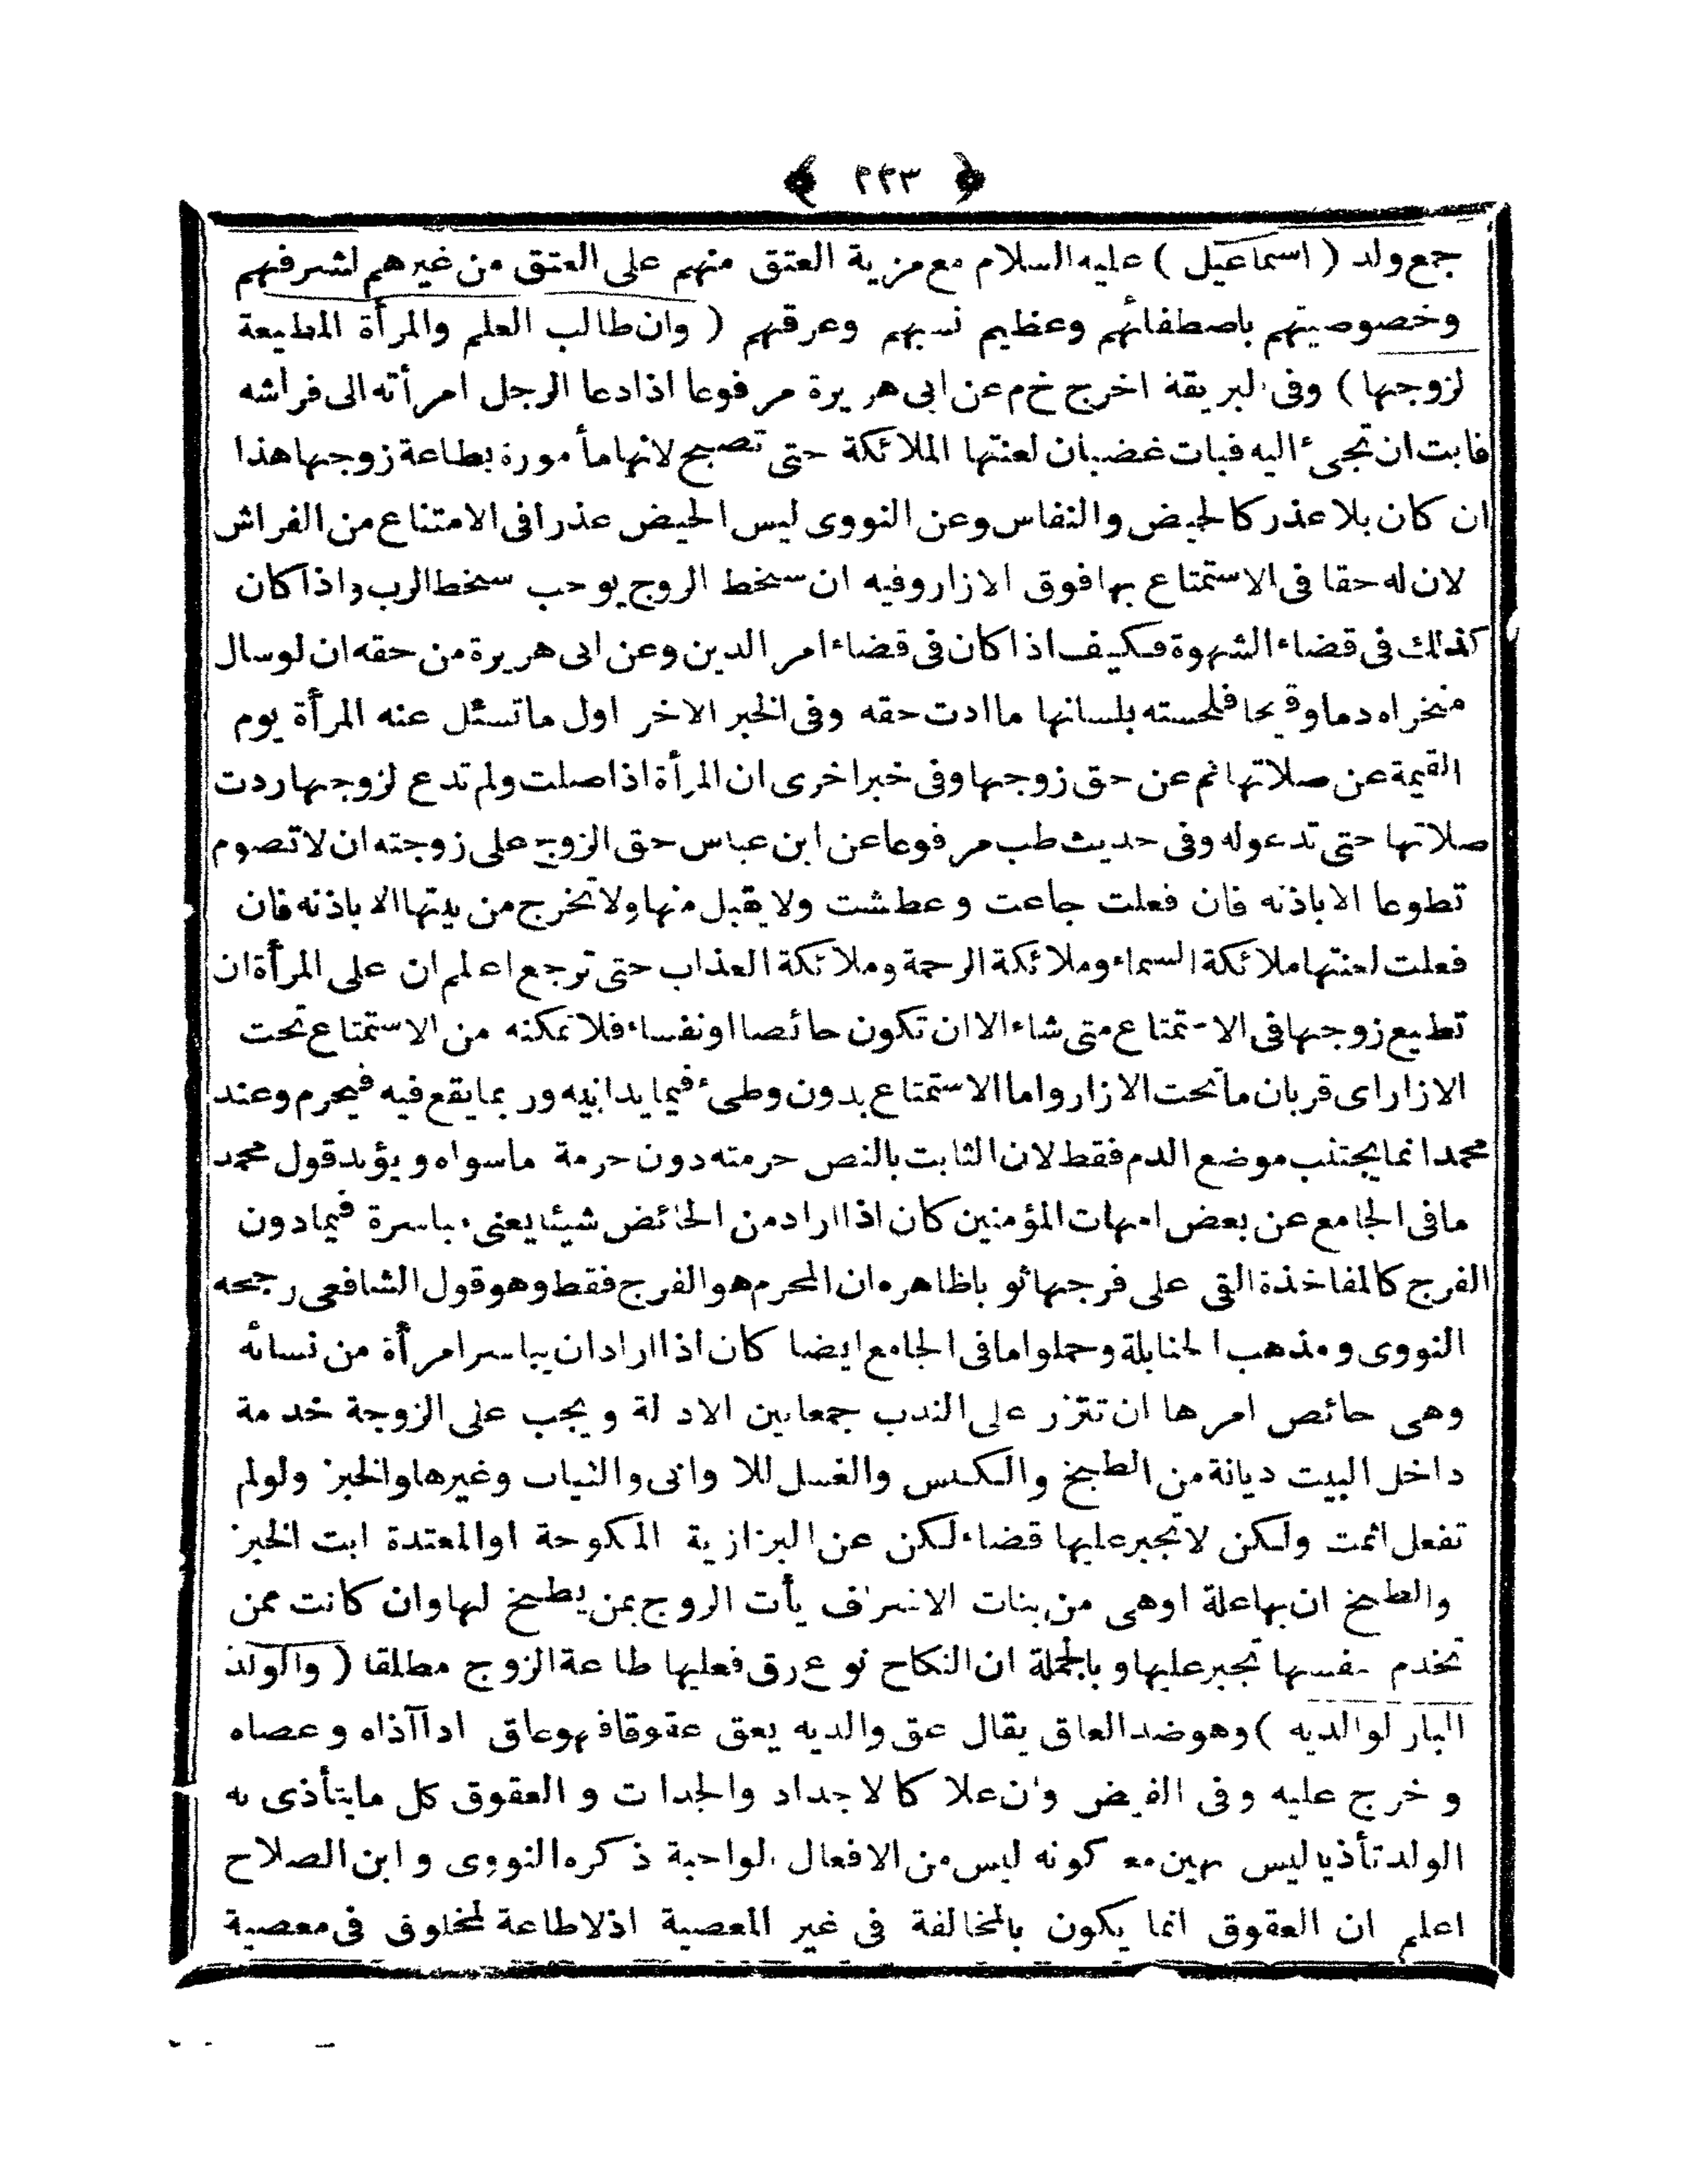 ﴿ ٢٢٣ ﴾
جمع ولد ( اسماعيل ) عليه السلام مع مزية العتق منهم على العتق من غيرهم لشرفهم
وخصوصيتهم باصطفائهم وعظيم نسبهم وعرقهم ( وان طالب العلم والمرأة المطيعة
لزوجها ) وفى البريقة اخرج خ م عن ابى هريرة مرفوعا اذا دعا الرجل امرأته الى فراشه
فابت ان تجىء اليه فبات غضبان لعنتها الملائكة حتى تصبح لانها مأمورة بطاعة زوجها هذا
ان كان بلا عذر كالحيض والنفاس وعن النووى ليس الحيض عذرا فى الامتناع من الفراش
لان له حقا فى الاستمتاع بها فوق الازار وفيه ان سخط الزوج يوجب سخط الرب واذا كان
كذلك فى قضاء الشهوة فكيف اذا كان فى قضاء امر الدين وعن ابى هريرة من حقه ان لوسال
منخراه دما وقيحا فلحسته بلسانها ما ادت حقه وفى الخبر الاخر اول ما تسئل عنه المرأة يوم
القيمة عن صلاتها ثم عن حق زوجها وفى خبر اخرى ان المرأة اذا صلت ولم تدع لزوجها ردت
صلاتها حتى تدعوله وفى حديث طب مرفوعا عن ابن عباس حق الزوج على زوجته ان لا تصوم
تطوعا الا باذنه فان فعلت جاعت وعطشت ولا يقبل منها ولا تخرج من بيتها الا باذنه فان
فعلت لعنتها ملائكة السماء وملائكة الرحمة وملائكة العذاب حتى ترجع اعلم ان على المرأة ان
تطيع زوجها فى الاستمتاع متى شاء الا ان تكون حائضا او نفساء فلا تمكنه من الاستمتاع تحت
الازار اى قربان ما تحت الازار واما الاستمتاع بدون وطىء فيما يدانيه وربما يقع فيه فيحرم وعند
محمد انما يجتنب موضع الدم فقط لان الثابت بالنص حرمته دون حرمة ماسواه ويؤيد قول محمد
مافى الجامع عن بعض امهات المؤمنين كان اذا اراد من الحائض شيئا يعنى مباسرة فيمادون
الفرج كالمفاخذة القى على فرجها ثوبا ظاهره ان المحرم هو الفرج فقط وهو قول الشافعى رجحه
النووى ومذهب الحنابلة وحملوا مافى الجامع ايضا كان اذا اراد ان يباسر امرأة من نسائه
وهى حائص امرها ان تتزر على الندب جمعا بين الادلة ويجب على الزوجة خدمة
داخل البيت ديانة من الطبخ والكنس والغسل للاوانى والثياب وغيرها والخبز ولو لم
تفعل اثمت ولكن لا تجبر عليها قضاء لكن عن البزازية المكوحة او المعتدة ابت الخبز
والطبخ ان بها علة اوهى من بنات الاشراف يأت الزوج بمن يطبخ لها وان كانت ممن
تخدم نفسها تجبر عليها وبالجملة ان النكاح نوع رق فعليها طاعة الزوج مطلقا ( والولد
البار لوالديه ) وهو ضد العاق يقال عق والديه يعق عقوقا فهو عاق اذا آذاه وعصاه
وخرج عليه وفى الفيض وان علا كالاجداد والجدات والعقوق كل ما يتأذى به
الولد تأذيا ليس بهين مع كونه ليس من الافعال الواجبة ذكره النووى وابن الصلاح
اعلم ان العقوق انما يكون بالمخالفة فى غير المعصية اذ لا طاعة لمخلوق فى معصية